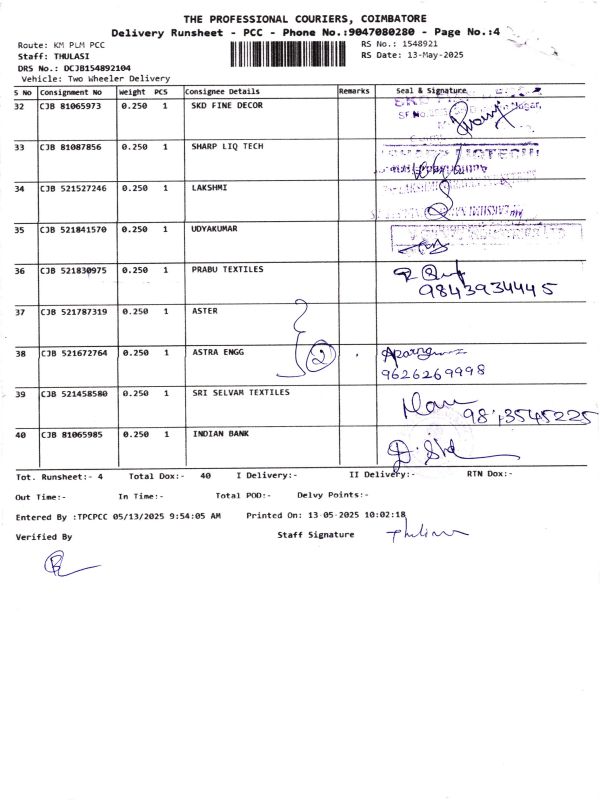 THE PROFESSIONAL COURIERS, COIMBATORE
Delivery Runsheet - PCC - Phone No.:9047080280 - Page No.:4
Route: KM PLM PCC
RS No.: 1548921
Staff: THULASI
RS Date: 13-May-2025
DRS No.: DCJB154892104
Vehicle: Two Wheeler Delivery
S No Consignment No Weight PCS Consignee Details Remarks Seal & Signature
32 CJB 81065973 0.250 1 SKD FINE DECOR
33 CJB 81087856 0.250 1 SHARP LIQ TECH
34 CJB 521527246 0.250 1 LAKSHMI
35 CJB 521841570 0.250 1 UDYAKUMAR
36 CJB 521830975 0.250 1 PRABU TEXTILES
9843934445
37 CJB 521787319 0.250 1 ASTER
38 CJB 521672764 0.250 1 ASTRA ENGG 2
9626269998
39 CJB 521458580 0.250 1 SRI SELVAM TEXTILES
40 CJB 81065985 0.250 1 INDIAN BANK
Tot. Runsheet:- 4 Total Dox:- 40 I Delivery:- II Delivery:- RTN Dox:-
Out Time:- In Time:- Total POD:- Delvy Points:-
Entered By :TPCPCC 05/13/2025 9:54:05 AM Printed On: 13-05-2025 10:02:18
Verified By Staff Signature